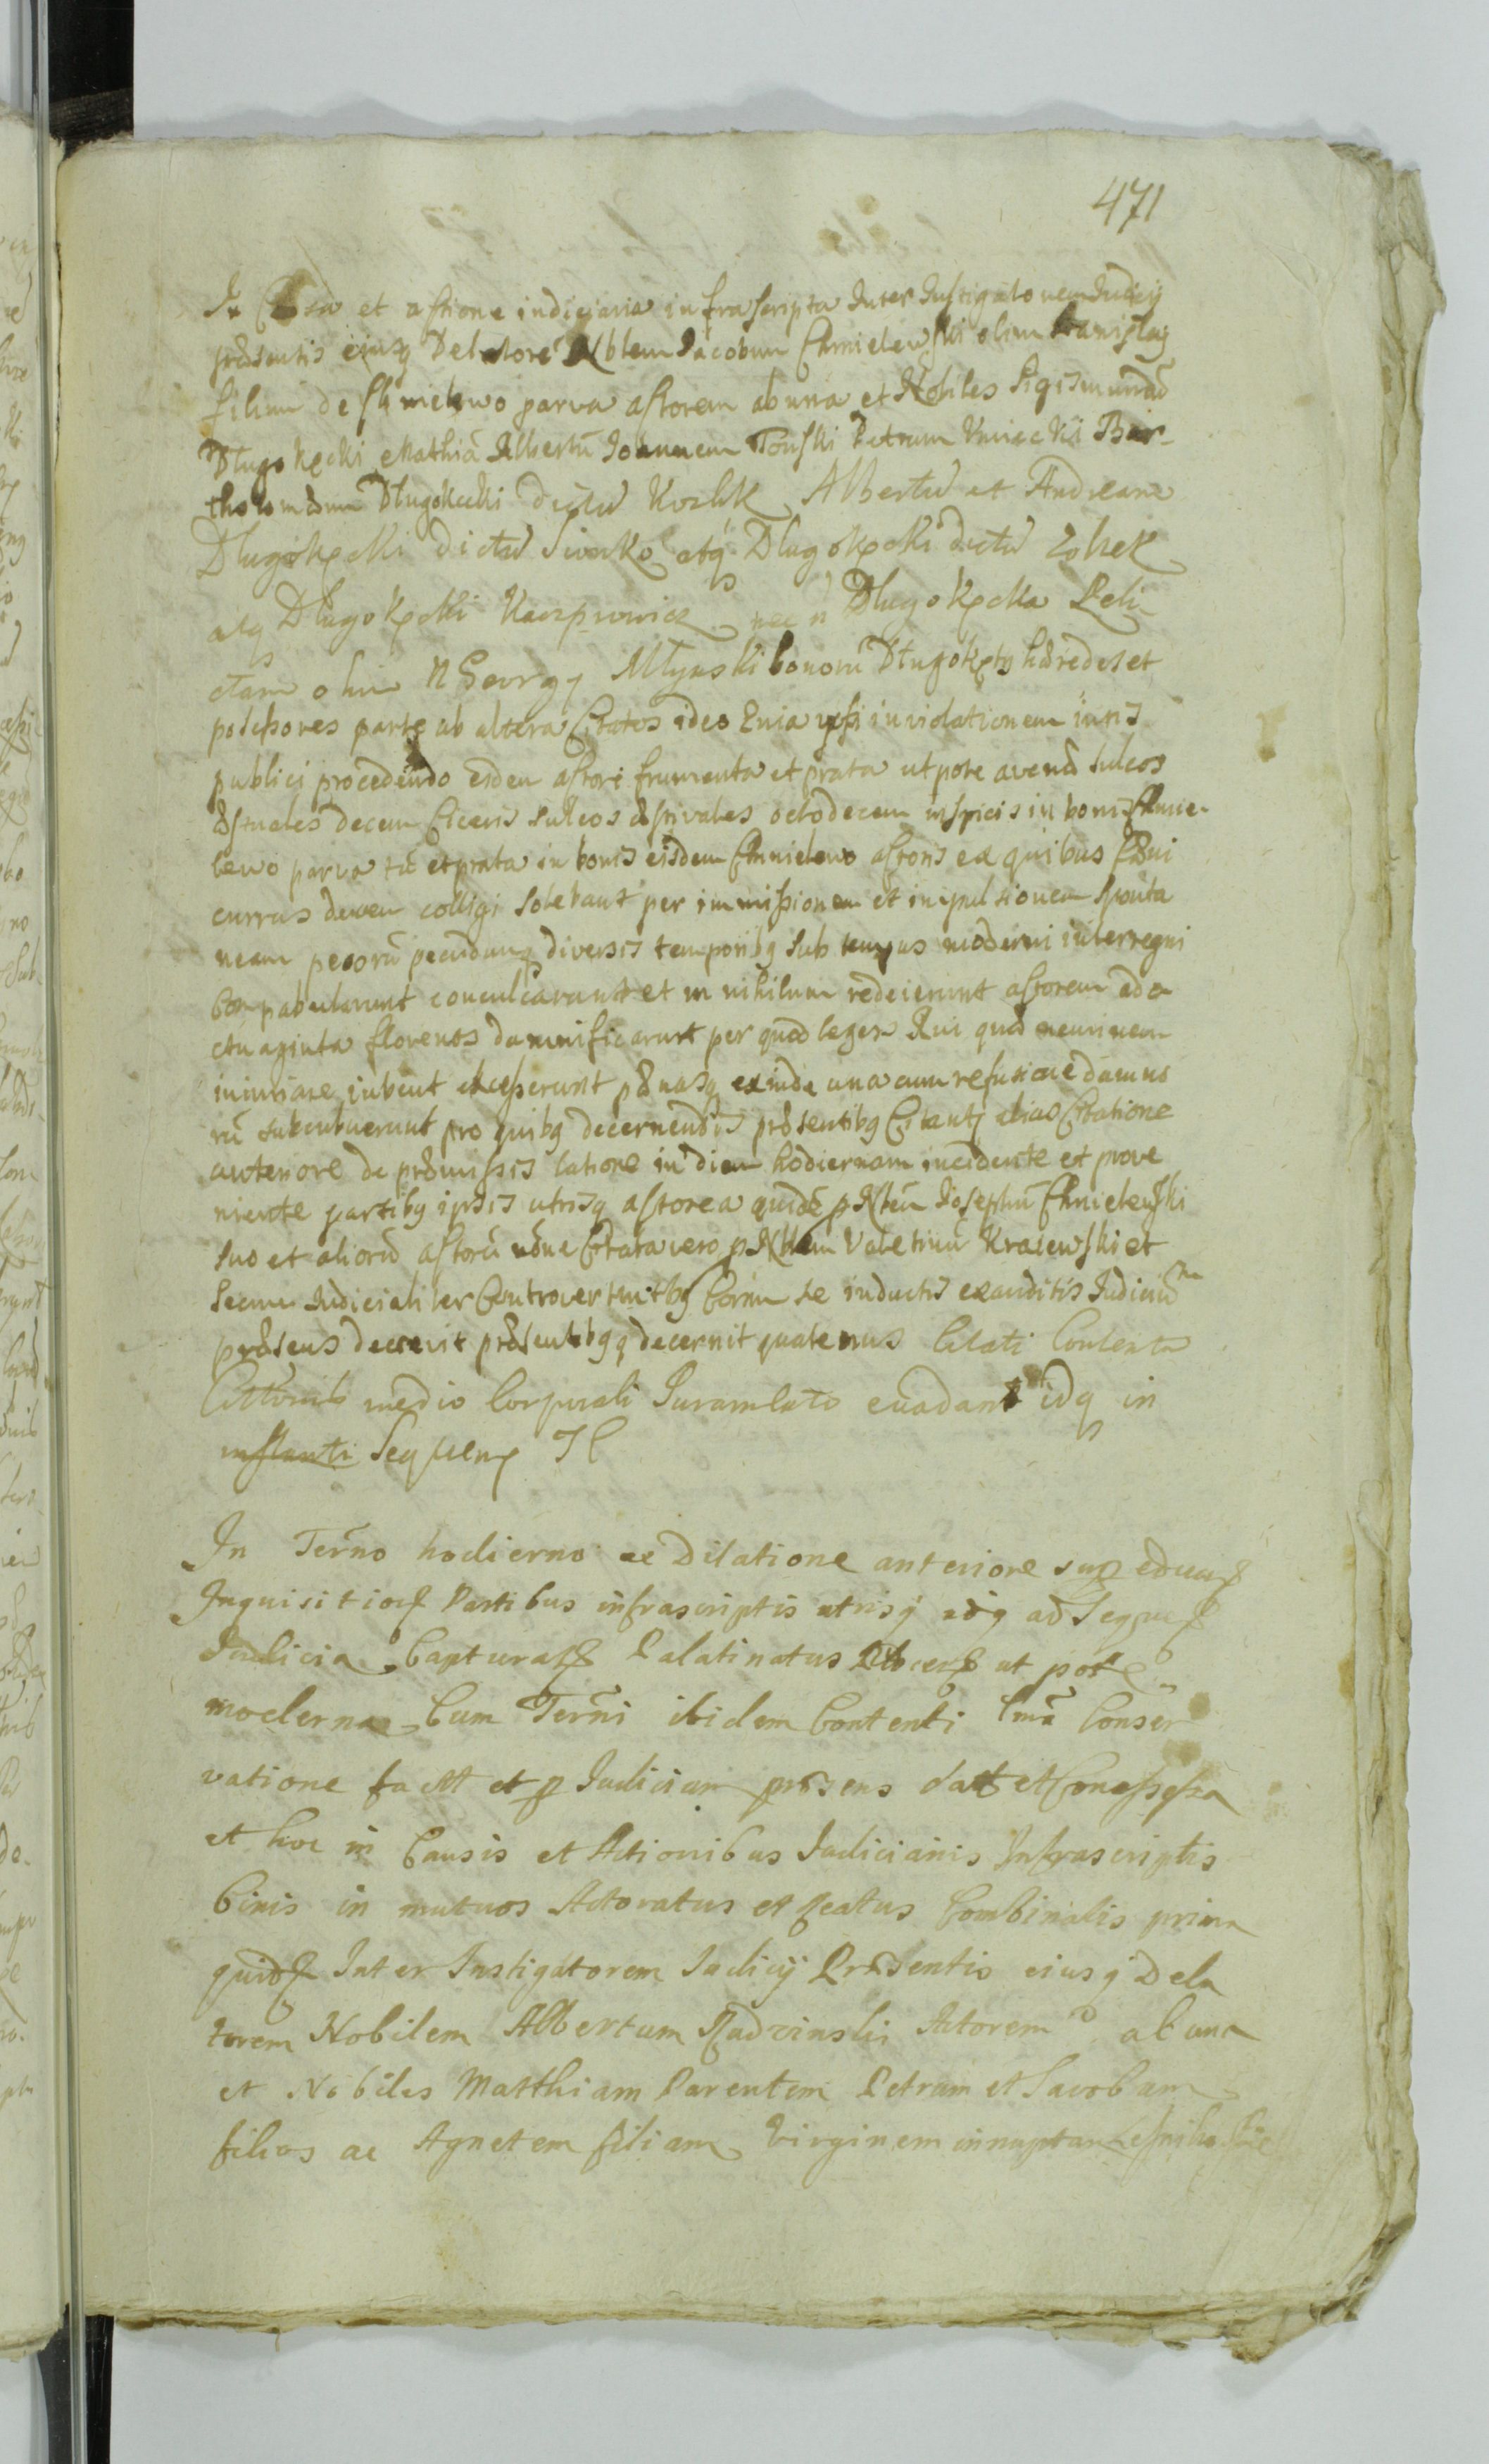 471
In Causa et actione iudiciaria infrascripta Inter Instigatorem Iudicij
præsentis eiusq Delatorē Nblem Iacobum Chmielewski olim Stanislai
filium de Chmielewo parva actorem ab una et Nobiles Sigismundū
Długokęcki Mathiā Albertū Ioannem Tonski Petrum Bar-
tholomæum Długokęcki dictū Kozlik Albertū et Andream
Długokęcki dictū Siwko atq Długokęcki dictū
atq Długokęcki nec n Długokęcka Reli
ctam olim N Georgij Młynski bonorū Długokęty hæredes et
possessores parte ab altera Citatos ideo Quia ipsi in violationem iuris
publici procedendo eidem actori frumenta et prata utpote avenæ sulcos
æstuales decem Ciceris sulcos æstivales octodecem in spicis in bonis Chmie-
lewo parva tū et prata in bonis eisdem Chmielewo actoris ex quibus fæni
currus decem colligi solebant per immissionem et impulsionem sponta
neam pecorū pecudumq diversis temporibq sub tempus moderni interregni
pabularunt conculcarunt et in nihilum redeierunt actorem
ctuaginta florenos damnificarunt per quod leges quæ neminem
iniuriare iubent excesserunt pænasq exinde una cum refusione damno
rū succubuerunt pro quibq decernendis præsentibq Citantq alias Citatione
anteriore de præmissis latione in diem hodiernam incidente et prove
niente partibq ipsis utrisq actorea quidē p Nblem Iosephū Chmielewski
suo et aliorū actorū nōne Citata vero p Nblem Valetinū Kraiewski et
secum Iudicialiter Controvertentibq Coram se inductis exauditis Iudiciū
præsens decrevit præsentibqq decernit quatenus Citati Contenta
Citationis medio Corporali Iuramento evadant idq in
instanti Sequenq

In Termō hodierno ex Dilatione anteriore sup
Inquisitioē Partibus infrascriptis utrisq idq ad Seque
Iudicia Capturalē Palatinatus ut pote
moderna Cum Termni ibidem Contenti Conser
vatione fact et p Iudicium præsens dat et Concessa
et hoc in Causis et Actionibus Iudiciariis Infrascriptis
binis in mutuos Actoratus et Reatus Combinatis prima
quidē Inter Instigatorem Iudicij Præsentis eiusq Dela
torem Nobilem Albertum Radzinski Actorem ab una
et Nobiles Matthiam Parentem Petrum et Iacobum
filios ac Agnetem filiam Virginem innuptam